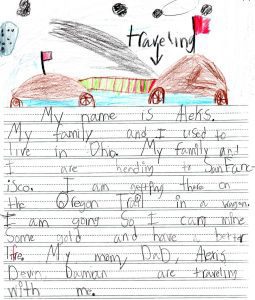 traveling
My name is Aleks.
My family and I used to
live in Ohio. My family and
I are hending to SanFanc-
isco. I am getting there on
the Oregon Trail in a wagon.
I am going So I can mine
Some gold and have better
life. My mom, DaD, Alexis
Devin Damian are traveling
with me.